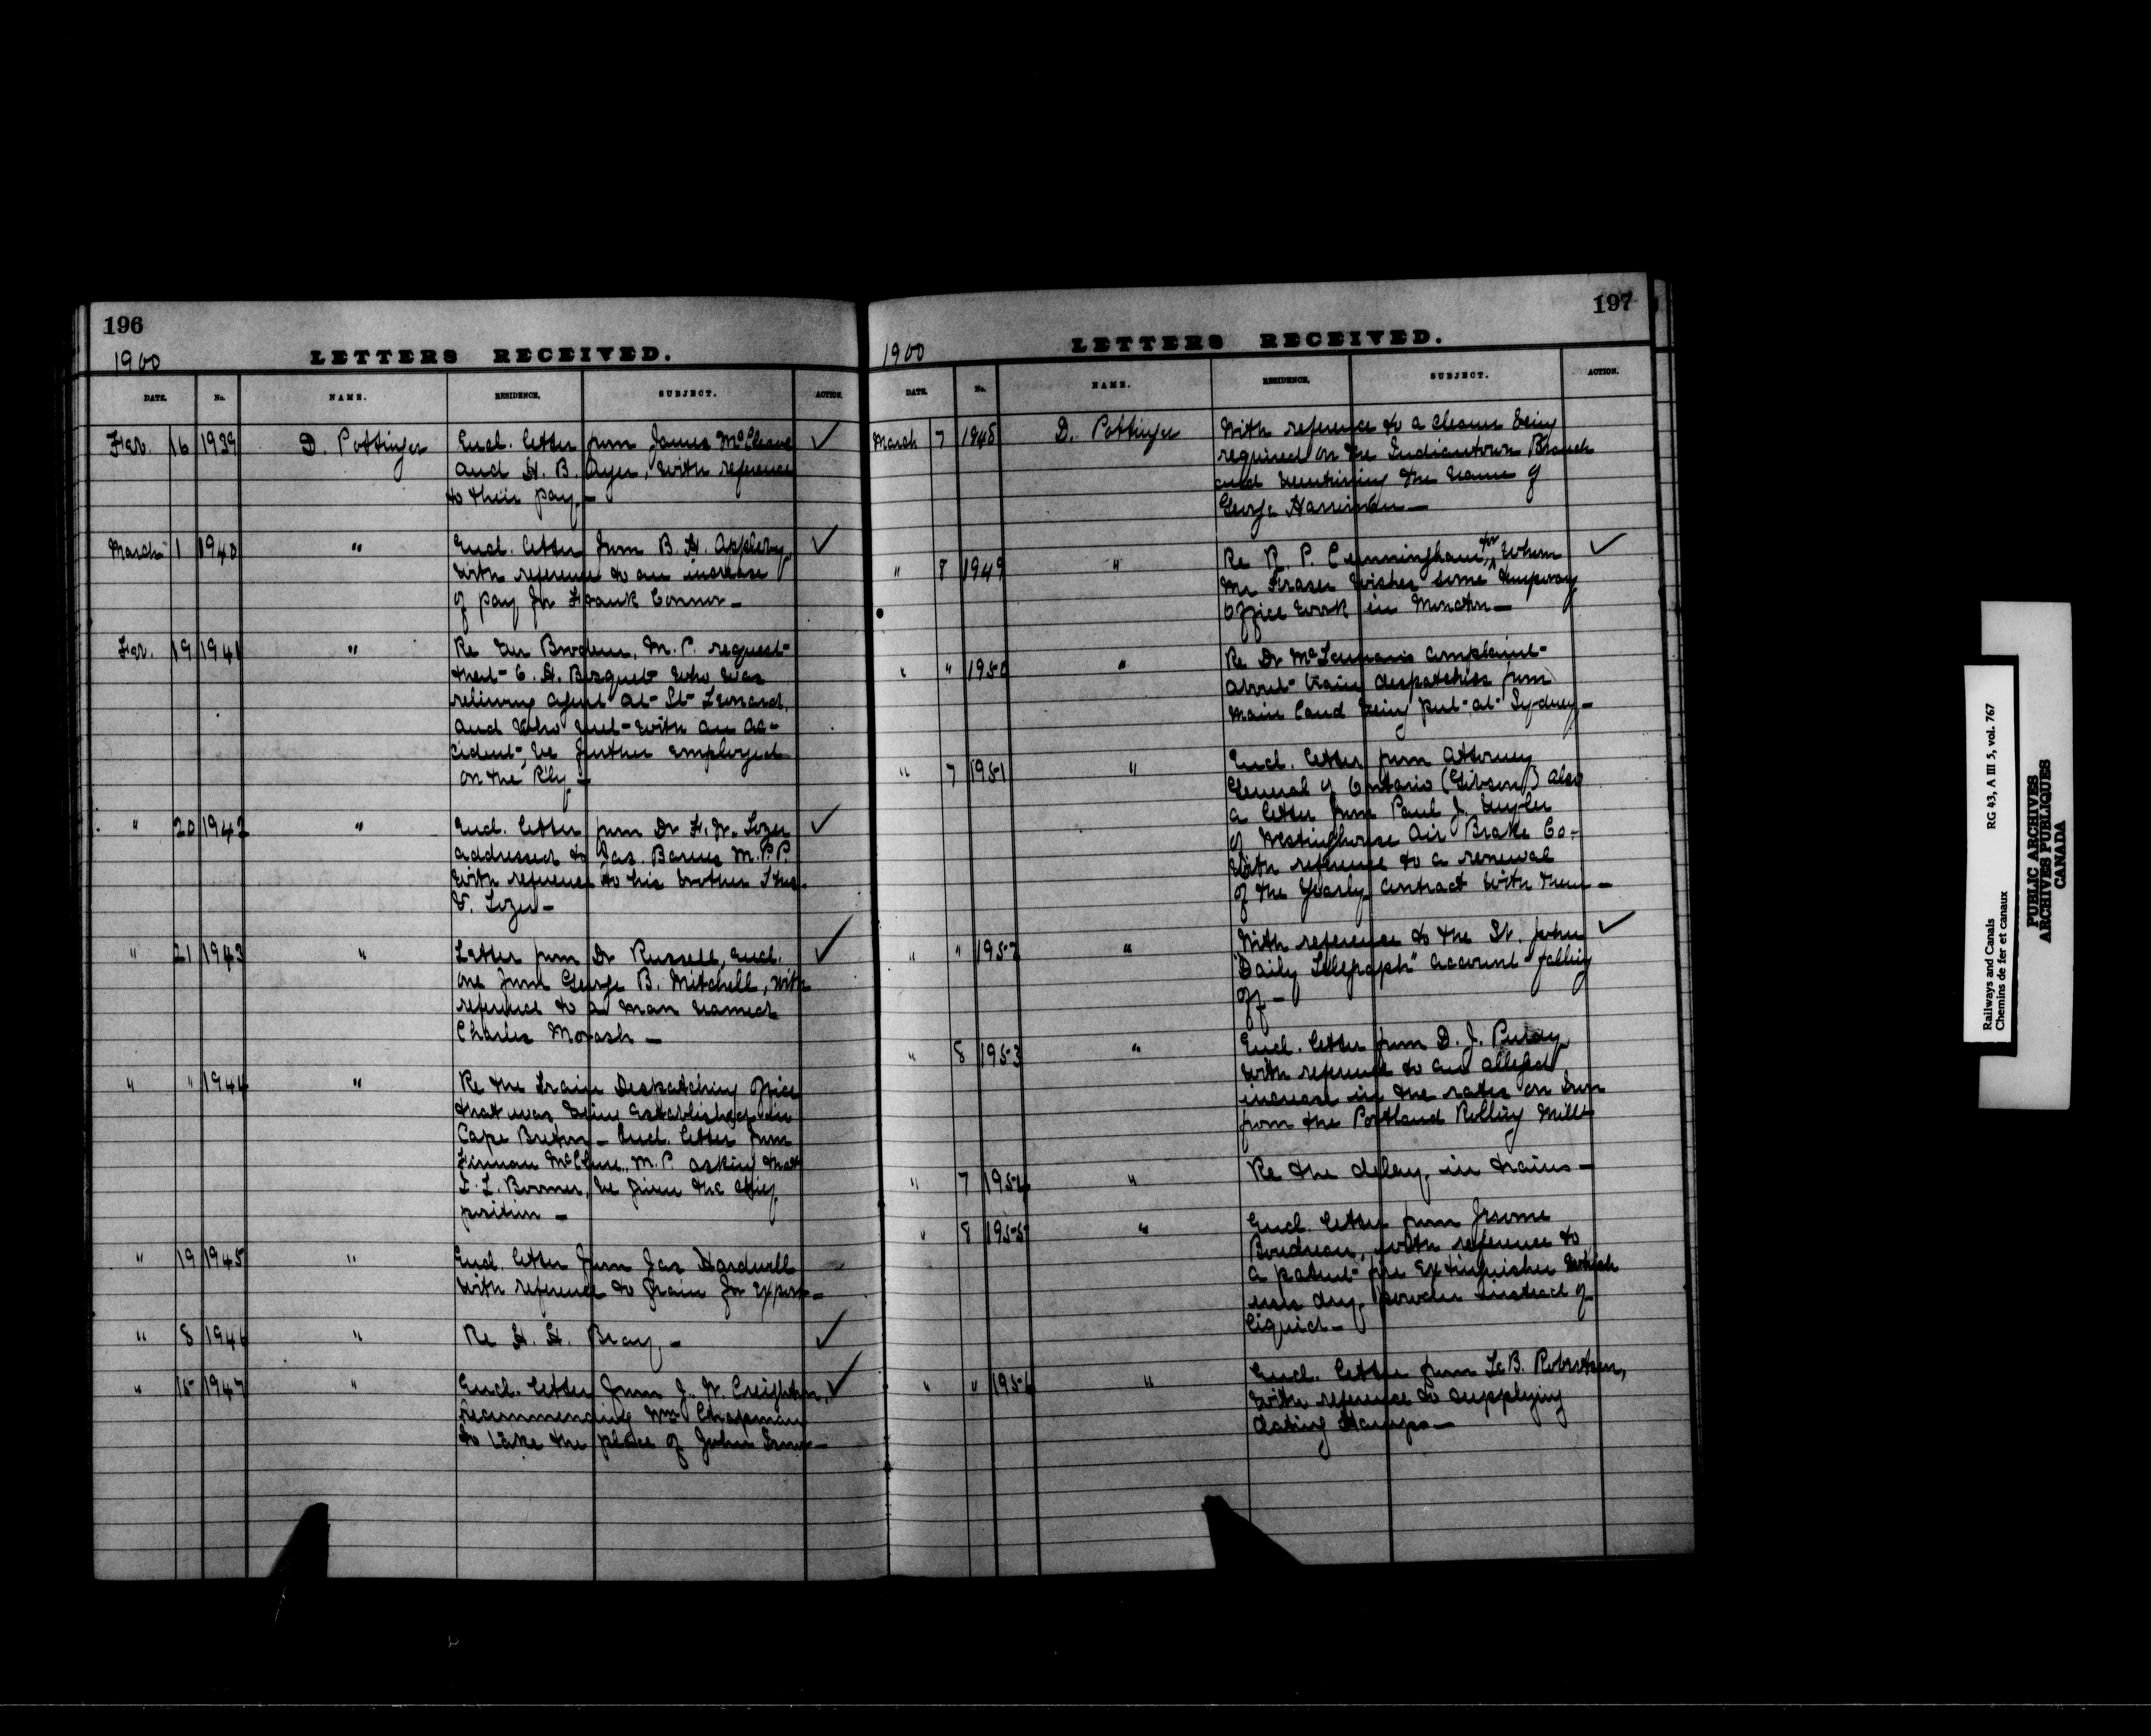 196
1900
LETTERS RECEIVED.
DATE. No. NAME. RESIDENCE, SUBJECT. ACTION.
16 1939 D. Pottinger Encl. letter from James McCleave ✓
and H. B. Ayer, with reference
to their pay.—
March 1 1940 " Encl. letter from B. H. Appleby ✓
with reference to an increase
of pay for Frank Connor—
19 1941 " Re M.P. request
that C. H. who was
relieving agent at St Leonard,
and who met with an ac-
cident, be further employed
on the Rly.—
" 20 1942 " Encl. letter from Dr F. W. ✓
addressed to Jas. Barnes M.P.P.
with reference to his brother
" 21 1943 " Letter from Dr Russell, encl. ✓
one from George B. Mitchell, with
reference to a man named
Charles Morash —
" " 1944 " Re the Train Despatching office
that was being established in
Cape Breton — Encl. letter from
Firman McClure, M.P. asking that
be given the chief
position —
" 19 1945 " Encl. letter from Jas Hardwell
with reference to grain for export—
" 8 1946 " Re H. H. Bray — ✓
" 15 1947 " Encl. letter from J. W. Creighton, ✓
recommending Wm Chapman
to take the place of John
197
1900
LETTERS RECEIVED.
DATE. No. NAME. RESIDENCE, SUBJECT. ACTION.
March 7 1948 D. Pottinger With reference to a cleaner being
required on the Indiantown Branch
and mentioning the name of
George Harriman—
" 8 1949 " Re R. P. Cunningham, for whom ✓
Mr Fraser wishes some temporary
office work in Moncton—
" " 1950 " Re Dr complaint
about train despatchers from
main land being put at Sydney—
" 7 1951 " Encl. letter from Attorney
General of Ontario (Gibson) also
a letter from Paul J.
of Westinghouse Air Brake Co.
with reference to a renewal
of the yearly contract with them—
" " 1952 " With reference to the St. John ✓
"Daily Telegraph" account falling
off—
" 8 1953 " Encl. letter from D. J. Purdy
with reference to an alleged
increase in the rates on Iron
from the Portland Rolling Mills
" 7 1954 " Re the delay in trains—
" 8 1955 " Encl. letter from Jerome
Boudreau, with reference to
a patent fire Extinguisher which
uses dry powder instead of
liquid—
" " 1956 " Encl. letter from Le B. Robertson,
with reference to supplying
dating stamps—
Railways and Canals RG 43, A III 5, vol. 767
Chemins de fer et canaux
PUBLIC ARCHIVES
ARCHIVES PUBLIQUES
CANADA